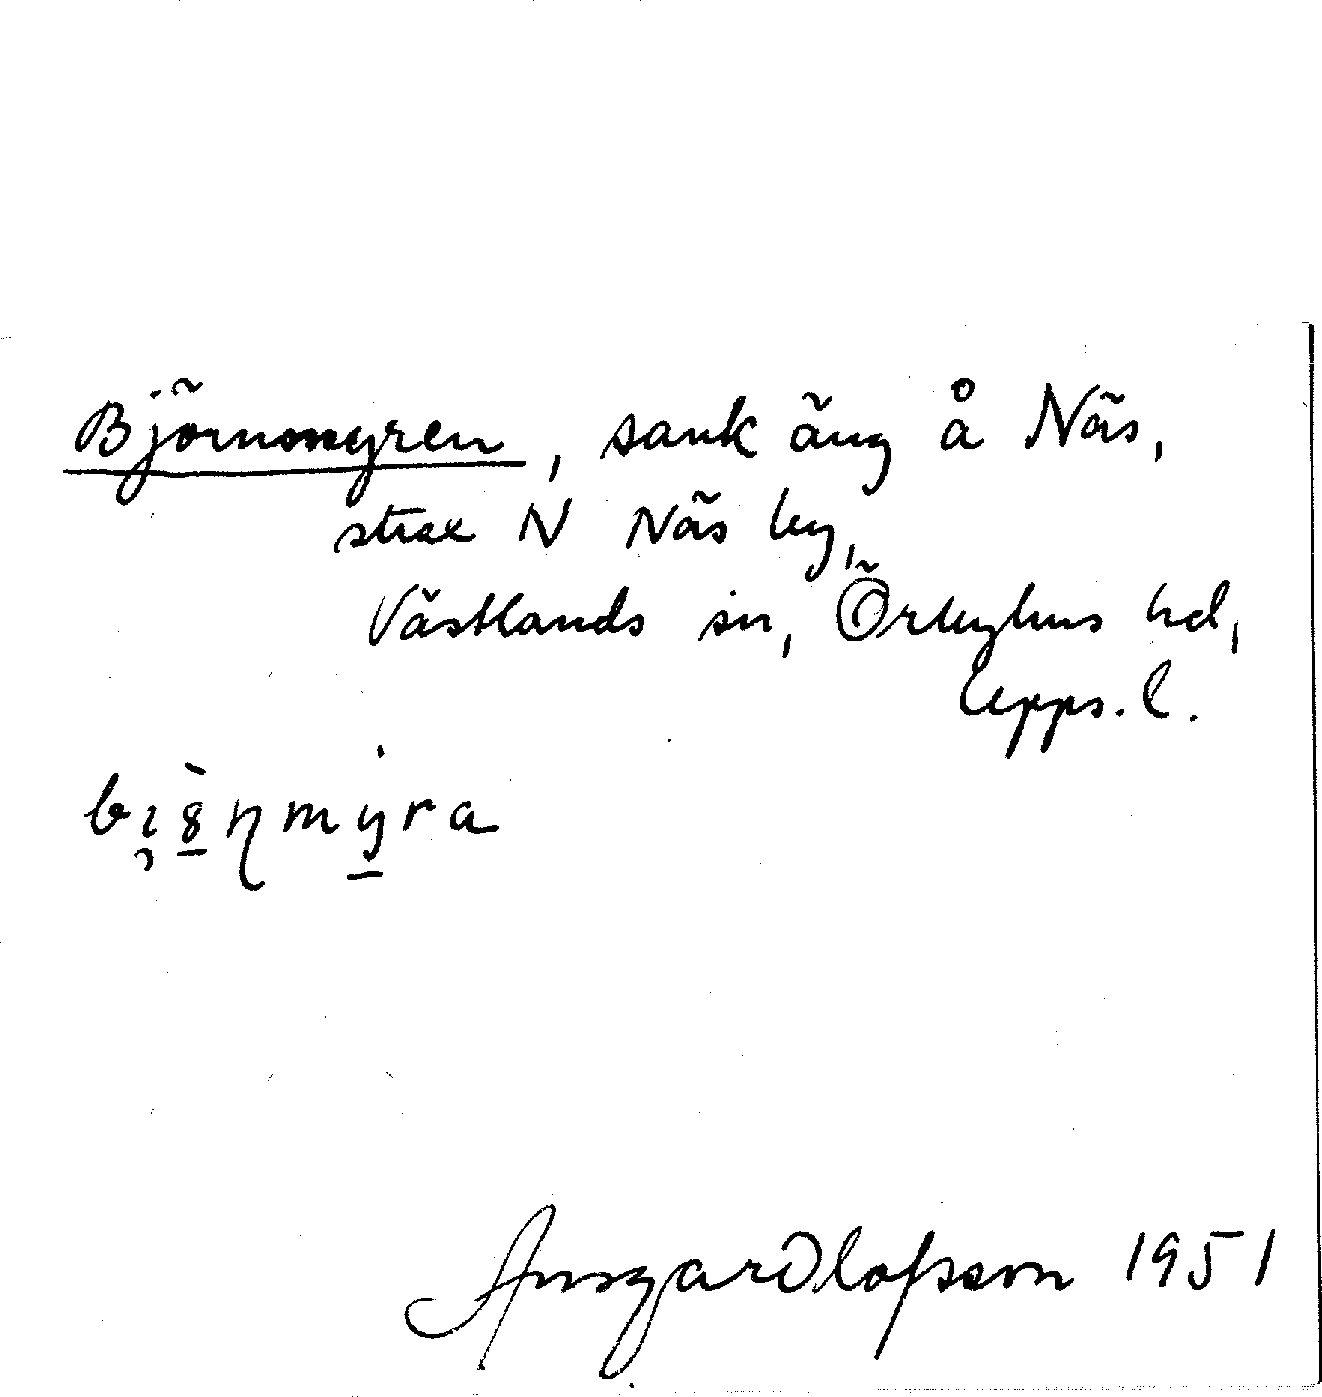 Björnmyren, sank äng å Näs,
strax N Näs by,
Västlands sn, Örbyhus hd,
Upps. l.
Ansgar Olofsson 1951